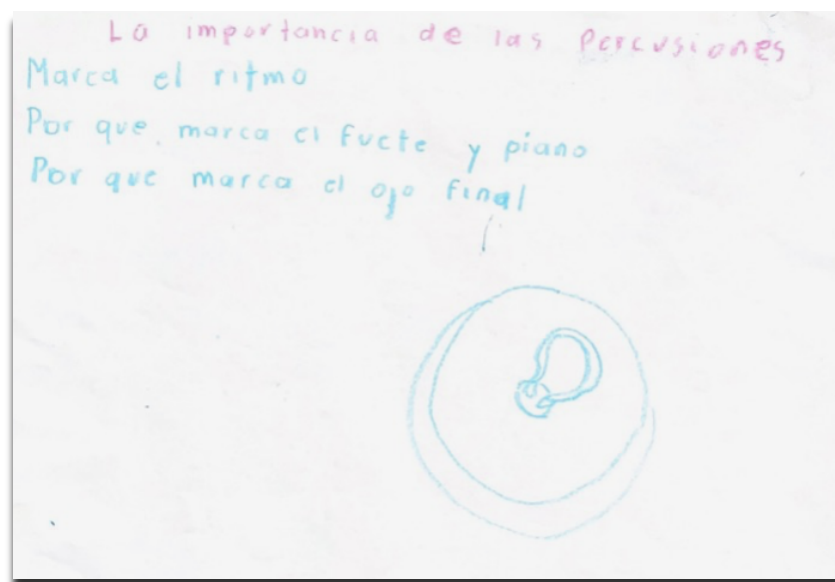 La importancia de las Percusiones
Marca el ritmo
Por que marca el fuete y piano
Por que marca el ojo final